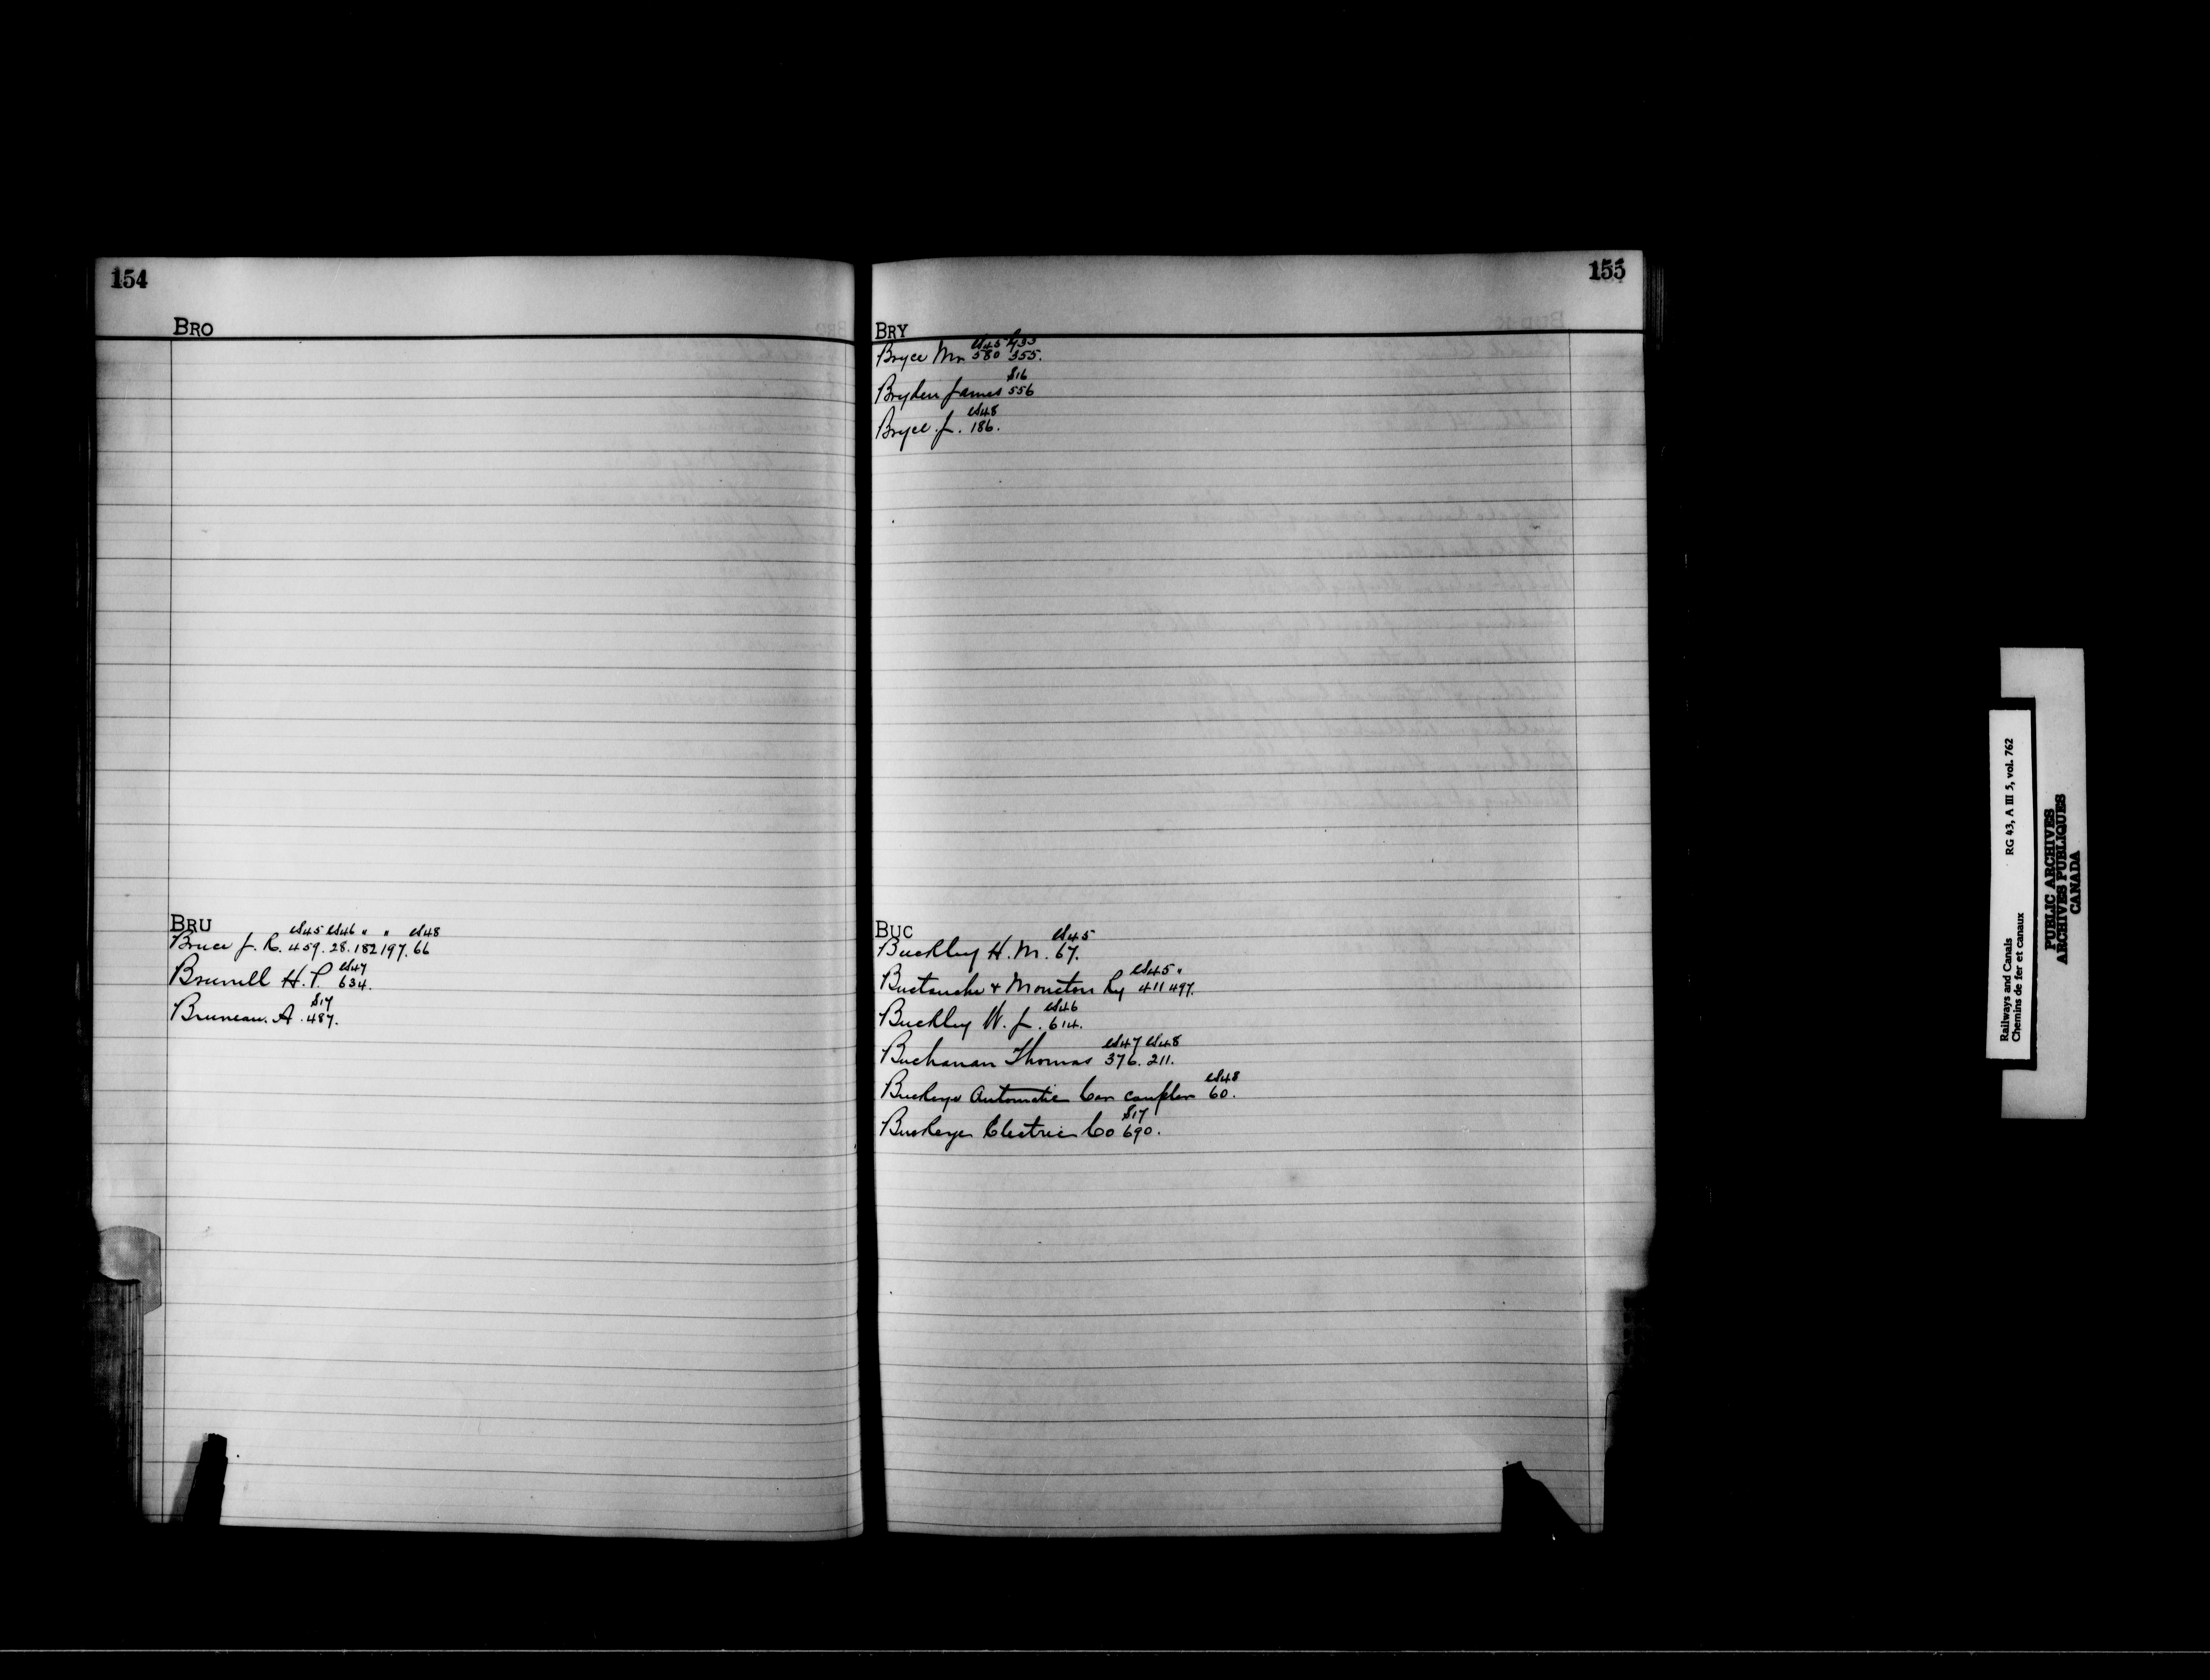 154
BRO
BRU
cs45 cs46 " " cs48
Bruce J. R. 459. 28. 182 197. 66
cs47
Brunell H. P. 634.
S17
Bruneau. A. 487.
155
BRY
cs45
Bryce Mr 580 355.
S16
Bryden James 556
cs48
Bryce. J. 186.
BUC
cs45
Buckley H. M. 67.
cs45 "
Buctouche & Moncton Ry 411 497.
cs46
Buckley W. J. 614.
cs47 cs48
Buchanan Thomas 376. 211.
cs48
Buckeye Automatic Car coupler 60.
S17
Buckeye Electric Co 690.
Railways and Canals RG 43, A III 5, vol. 762
Chemins de fer et canaux
PUBLIC ARCHIVES
ARCHIVES PUBLIQUES
CANADA